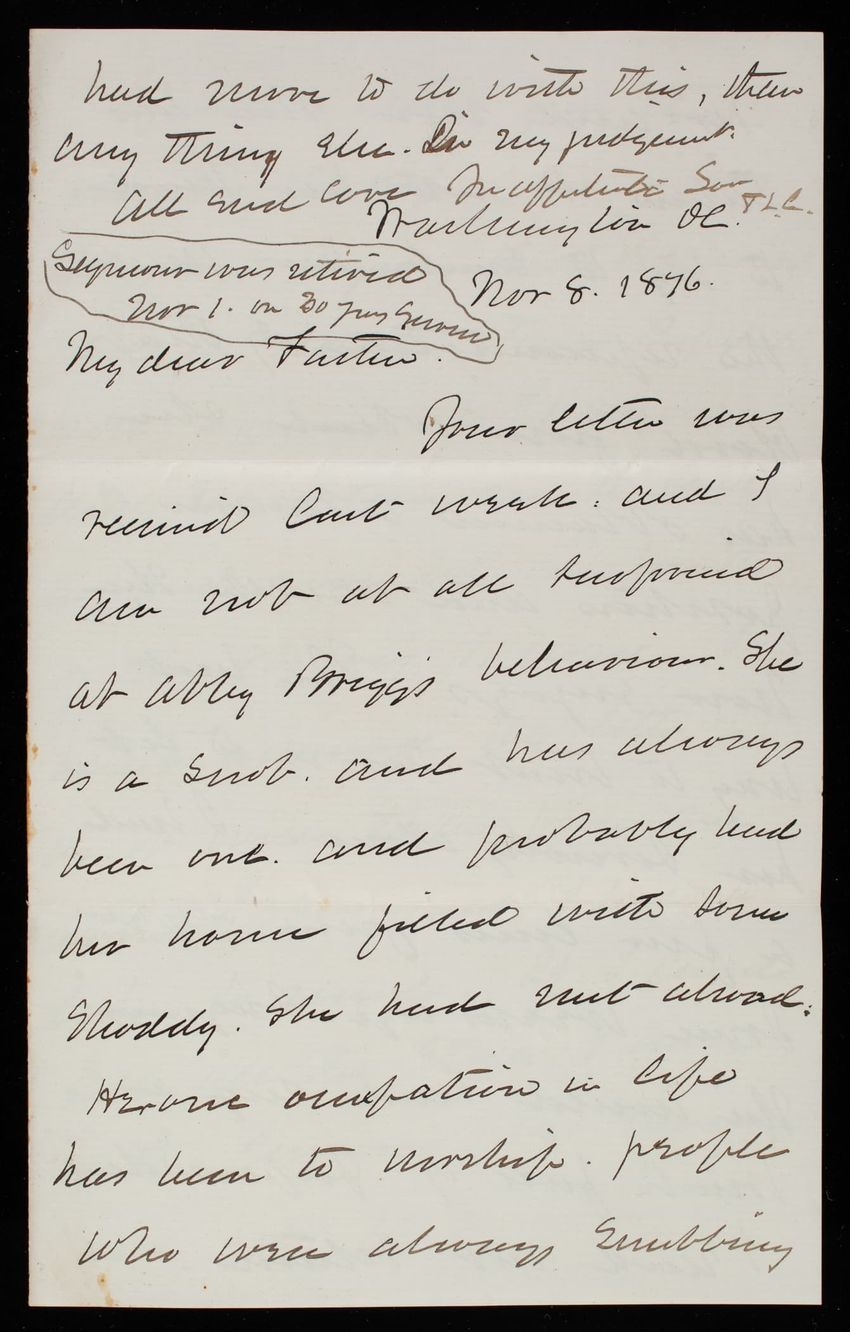 had more to do with this, than
any thing else. In my judgement.
All send love Yr affectnate Son
T.L.C.
Washington DC.
Nov 8. 1876.
Seymour was retired
Nov 1. on 30 years Service
My dear Father.
Your letter was
received last week. and I
am not at all surprised
at Abby Briggs behaviour. She
is a snob. and has always
been one. and probably had
her house filled with some
Shoddy. She had met abroad.
Her one occupation in life
has been to worship. people
who were always snubbing